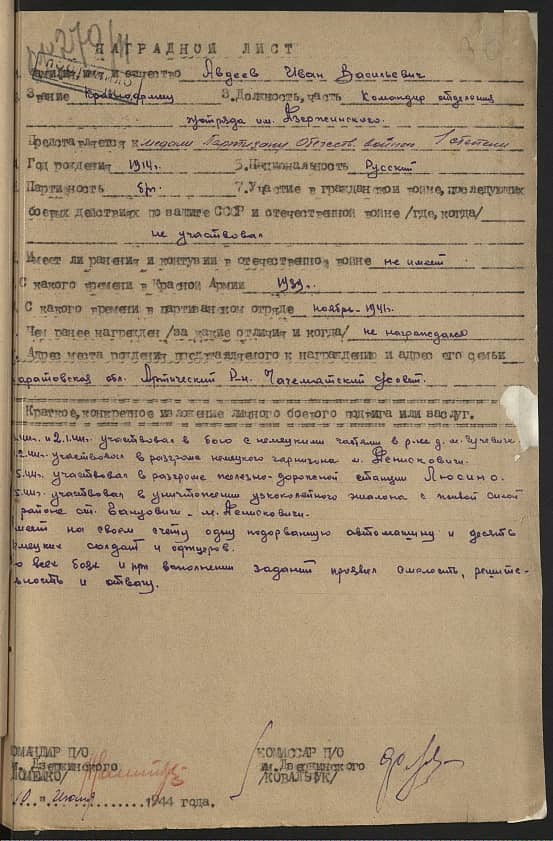 №270/11
НАГРАДНОЙ ЛИСТ
Фамилия, имя и отчество Авдеев Иван Васильевич
Звание Красноармеец 3. Должность, часть Командир отделения
п/отряда им. Дзержинского.
Представляется к медали Партизану Отечеств. войны I степени
Год рождения 1914 г. 5. Национальность Русский
Партийность бр. 7. Участие в гражданской войне, последующих
боевых действиях по защите СССР и отечественной войне /где, когда/
не участвовал
Имеет ли ранения и контузии в отечественной войне не имеет
С какого времени в Красной Армии 1939 г.
С какого времени в партизанском отряде ноябрь-1941 г.
Чем ранее награжден /за какие отличия и когда/ не награждался
Адрес места рождения представляемого к награждению и адрес его семьи
аратовская обл. р-н.
Краткое, конкретное изложение личного боевого подвига или заслуг.
участвовал в бою с немецкими частями в р-не д.
участвовал в разгроме немецкого гарнизона м. Денисковичи.
участвовал в разгроме железно-дорожной станции Люсино.
участвовал в уничтожении узкоколейного эшалона с живой силой
районе ст. Ганцовичи - м. Денисковичи.
меет на своем счету одну подорванную автомашину и десять
мецких солдат и офицеров.
о всех боях и при выполнении заданий проявил смелость, решите-
льность и отвагу.
ОМАНДИР П/О КОМИССАР П/О
м. Дзержинского им. Дзержинского
/КОВАЛЬЧУК/
10 " Июня 1944 года.